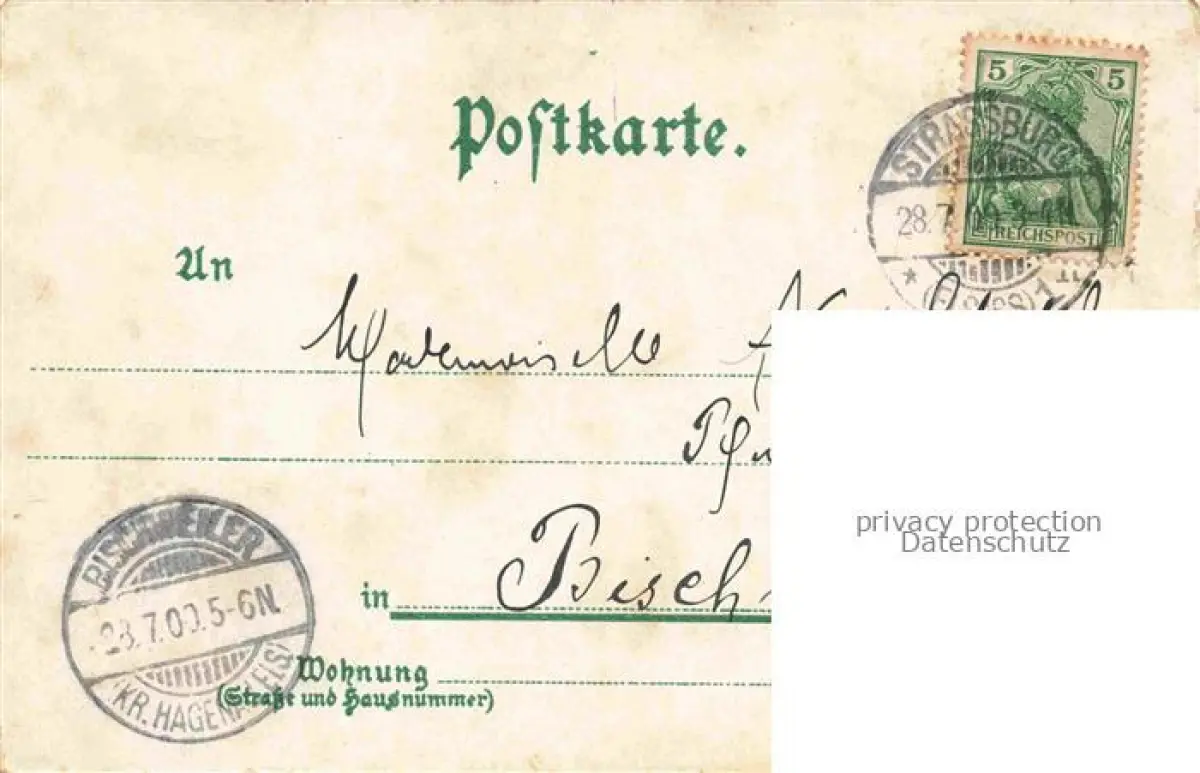 5 5
REICHSPOST
STRASSBURG
28.7.00
(ELSASS) 1
Postkarte.
An
Mademoiselle
BISCHWEILER
28.7.00.5-6N.
(KR. HAGENAU ELS)
in Bisch-
Wohnung
(Straße und Hausnummer)
privacy protection
Datenschutz